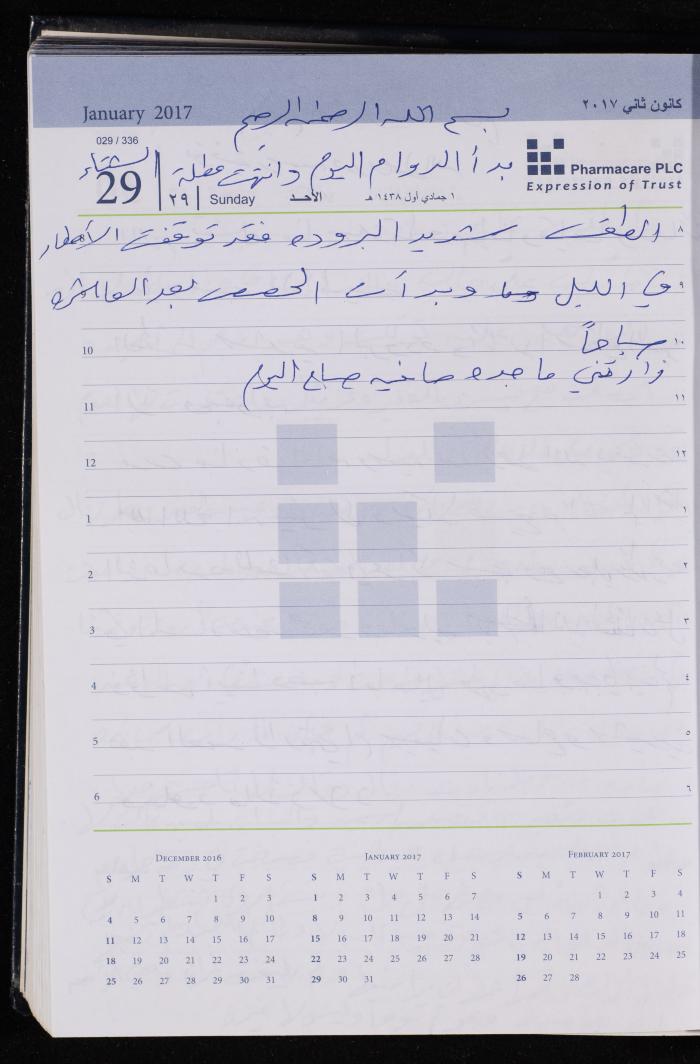 January 2017
كانون ثاني ٢٠١٧
بسم الله الرحمن الرحيم
029 / 336
29
٢٩
Sunday
الأحـد
١ جمادي أول ١٤٣٨ هـ
Pharmacare PLC
Expression of Trust
بدأ الدوام اليوم وانتهت عطلة الشتاء
٨ الطقس شديد البروده فقد توقفت الأمطار
٩ في الليل وبدأت الحصص بعد العاشره
10 صباحاً ١٠
وارتني ماجده صافيه صباح اليوم
11 ١١
12 ١٢
1 ١
2 ٢
3 ٣
4 ٤
5 ٥
6 ٦
December 2016
S M T W T F S
1 2 3
4 5 6 7 8 9 10
11 12 13 14 15 16 17
18 19 20 21 22 23 24
25 26 27 28 29 30 31
January 2017
S M T W T F S
1 2 3 4 5 6 7
8 9 10 11 12 13 14
15 16 17 18 19 20 21
22 23 24 25 26 27 28
29 30 31
February 2017
S M T W T F S
1 2 3 4
5 6 7 8 9 10 11
12 13 14 15 16 17 18
19 20 21 22 23 24 25
26 27 28